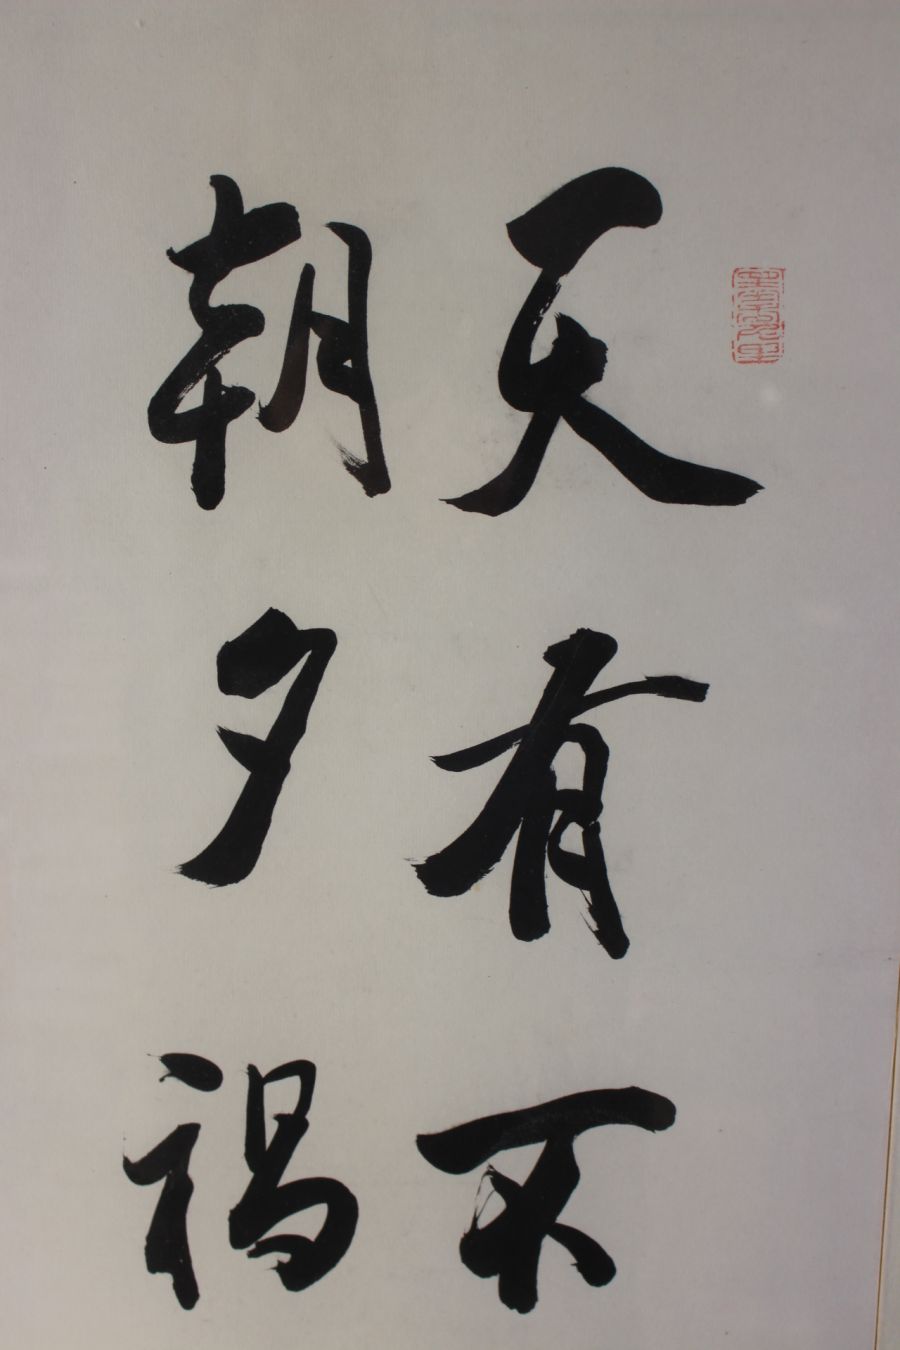 天有不
朝夕禍